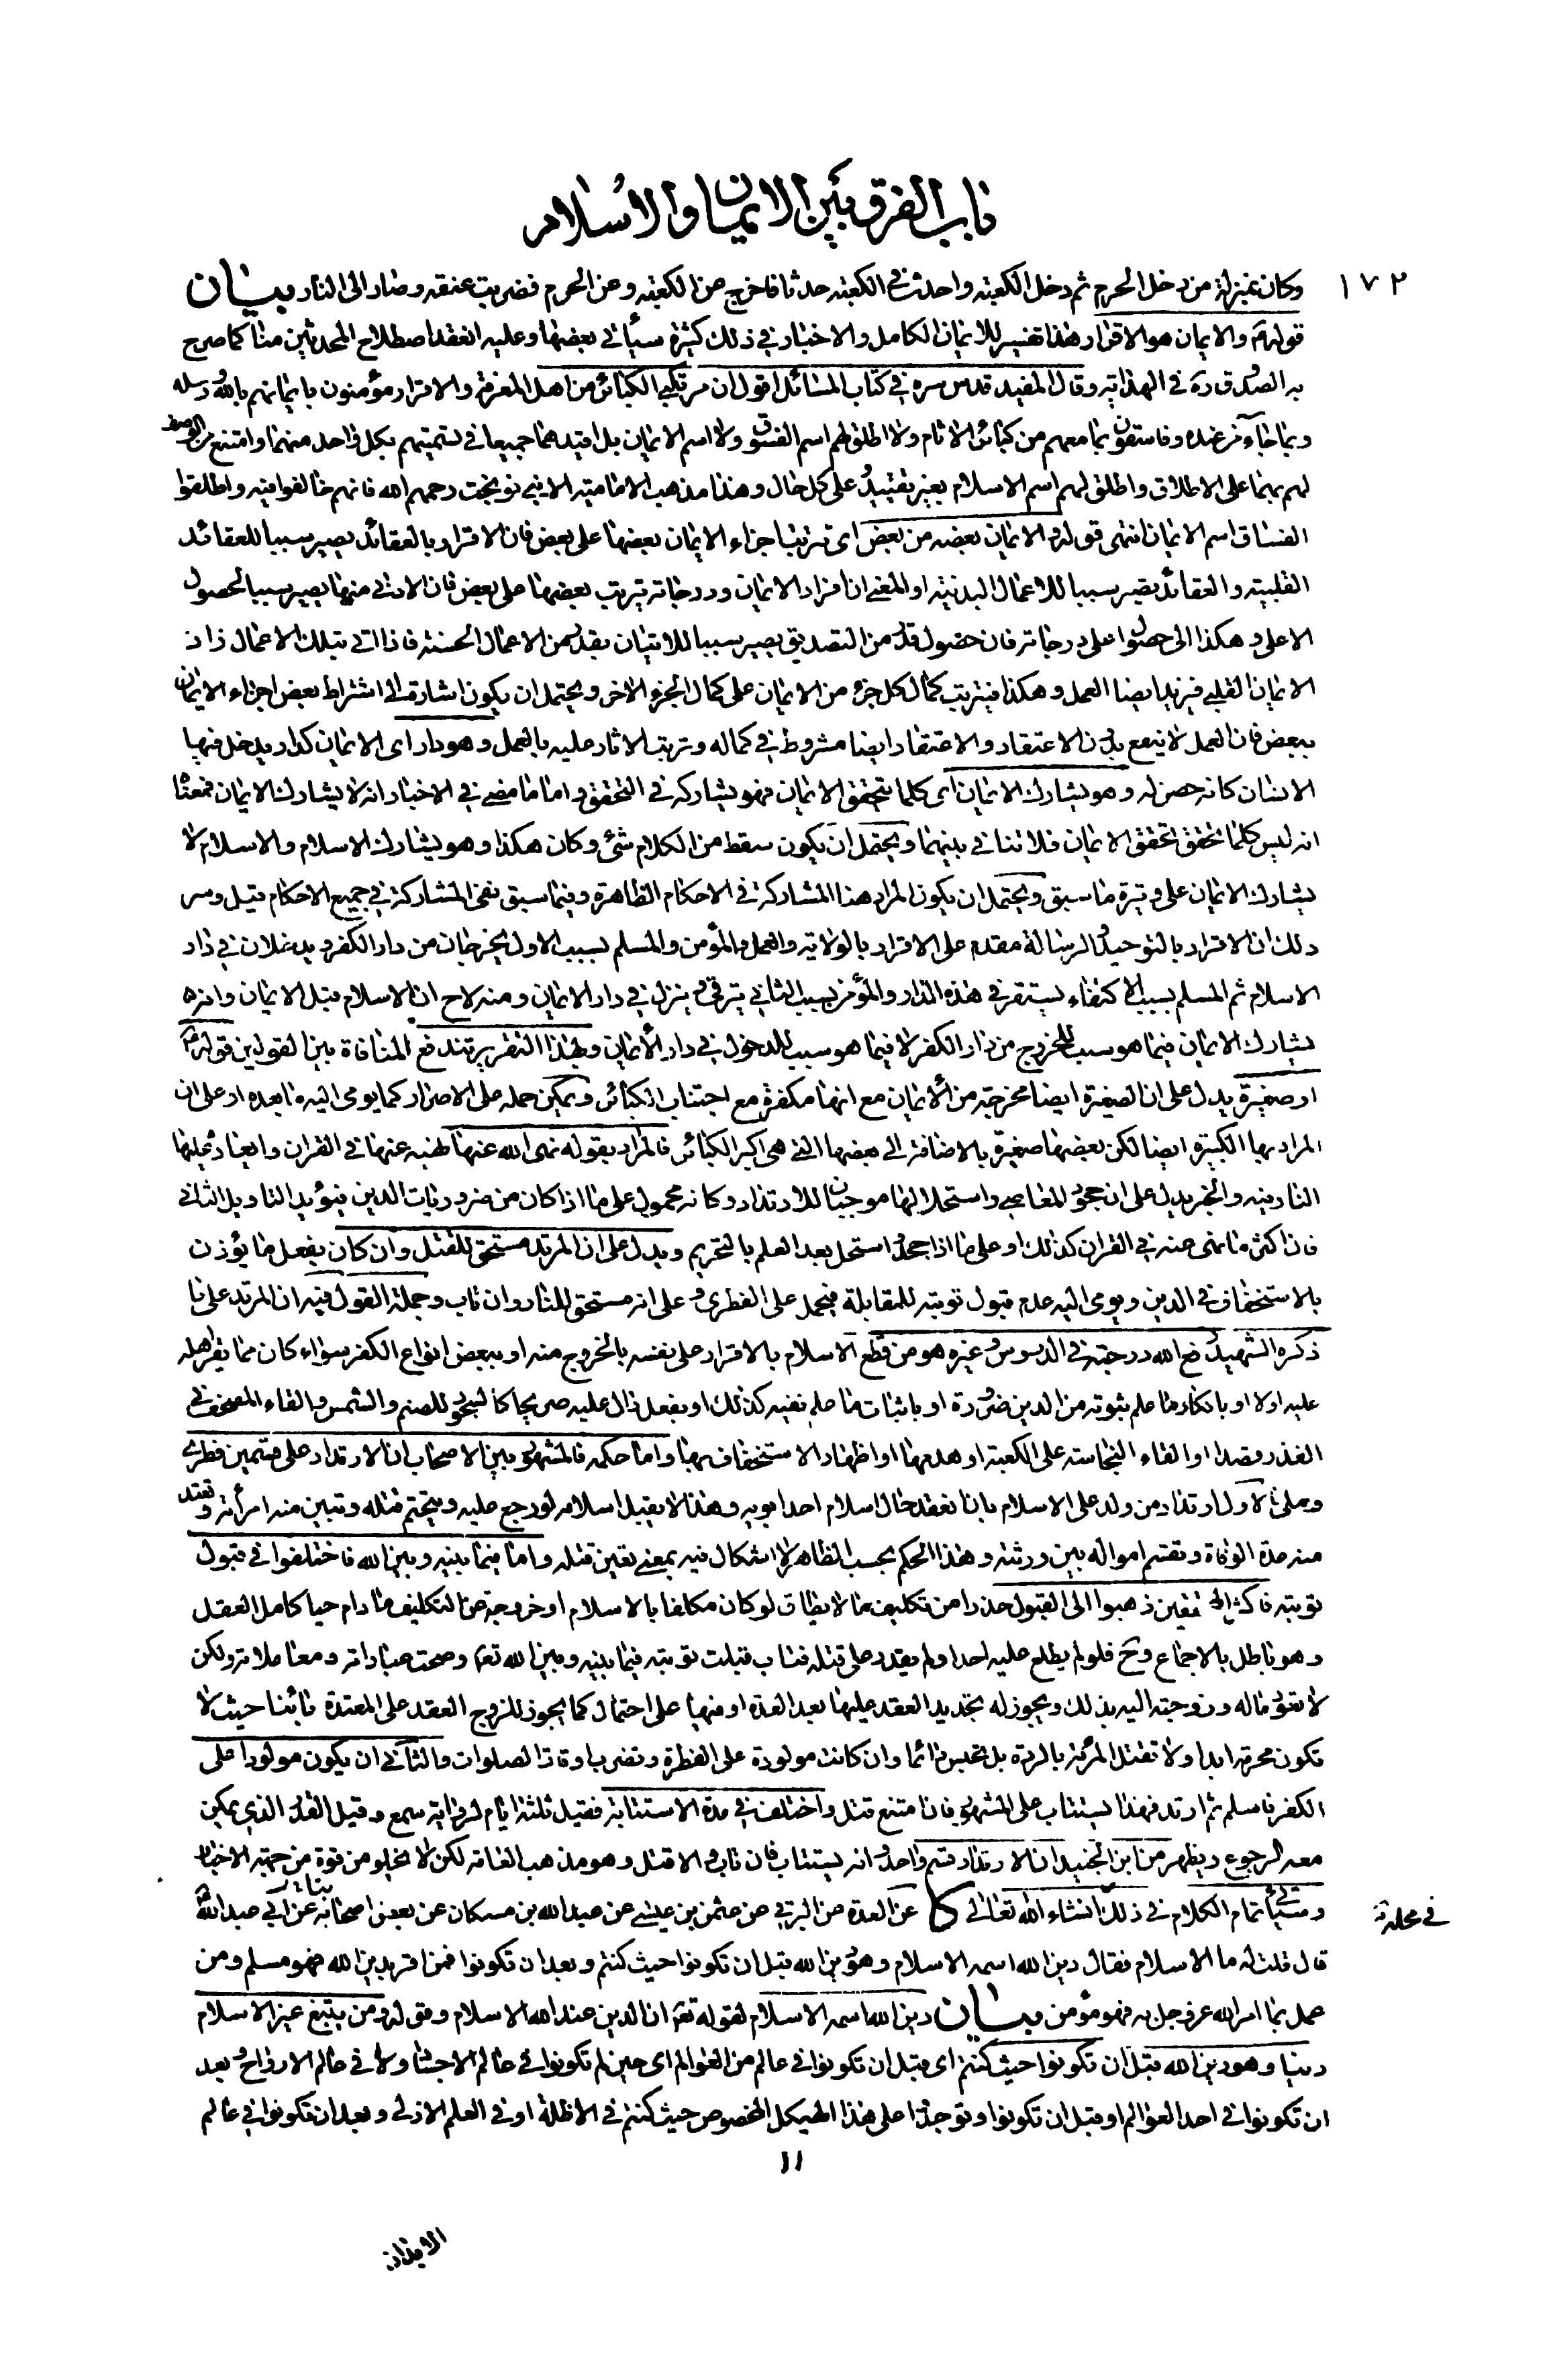 باب الفرق بين الايمان والاسلام
١٧٢
وكان بمنزلة من دخل الحرم ثم دخل الكعبة واحدث في الكعبة حدثا فاخرج عن الكعبة وعن الحرم فضربت عنقه وصار الى النار بيان
قوله ع والايمان هو الاقرار هذا تفسير للايمان الكامل والاخبار في ذلك كثيرة سيأتي بعضها وعليه انعقد اصطلاح المحدثين منا كما صرح
به الصدوق ره في الهداية وقال المفيد قدس سره في كتاب المسائل اقول ان مرتكبي الكبائر من اهل المعرفة والاقرار مؤمنون بايمانهم بالله ورسله
وبما جاء من عنده وفاسقون بما معهم من كبائر الاثام ولا اطلق لهم اسم الفسوق ولا اسم الايمان بل اقيدهما جميعا في تسميتهم بكل واحد منهما وامتنع من الوصف
لهم بهما على الاطلاق واطلق لهم اسم الاسلام بغير تقييد على كل حال وهذا مذهب الامامية الا بني نوبخت رحمهم الله فانهم خالفوا فيه واطلقوا
الفساق اسم الايمان انتهى قوله والايمان بعضه من بعض اى تترتب اجزاء الايمان بعضها على بعض فان الاقرار بالعقائد يصير سببا للعقائد
القلبية والعقائد تصير سببا للاعمال البدنية او المعنى ان افراد الايمان ودرجاته يترتب بعضها على بعض فان الادنى منها يصير سببا لحصول
الاعلى وهكذا الى حصول اعلى درجاته فان حصول قدر من التصديق يصير سببا للاتيان بقدر من الاعمال الحسنة فاذا اتى بتلك الاعمال زاد
الايمان القلبي فيزيد ايضا العمل وهكذا فيترتب كمال كل جزء من الايمان على كمال الجزء الاخر ويحتمل ان يكون اشارة الى اشتراط بعض اجزاء الايمان
ببعض فان العمل لا ينفع بدون الاعتقاد والاعتقاد ايضا مشروط في كماله وترتب الاثار عليه بالعمل وهو دار اى الايمان كدار يدخل فيها
الانسان كانه حصن له وهو يشارك الايمان اى كلما يتحقق الايمان فهو يشاركه في التحقق واما ما مضى في الاخبار انه لا يشارك الايمان فمعناه
انه ليس كلما تحقق تحقق الايمان فلا تنافي بينهما ويحتمل ان يكون سقط من الكلام شئ وكان هكذا وهو يشارك الاسلام والاسلام لا
يشارك الايمان على وتيرة ما سبق ويحتمل ان يكون المراد هنا المشاركة في الاحكام الظاهرة وفيما سبق نفي المشاركة في جميع الاحكام قيل وسر
ذلك ان الاقرار بالتوحيد والرسالة مقدم على الاقرار بالولاية والعمل والمؤمن والمسلم بسبب الاول يخرجان من دار الكفر ويدخلان في دار
الاسلام ثم المسلم بسبب الاكتفاء يستقر في هذه الدار والمؤمن بسبب الثاني يترقى وينزل في دار الايمان ومنه لاح ان الاسلام قبل الايمان وانه
يشارك الايمان فيما هو سبب للخروج من دار الكفر لا فيما هو سبب للدخول في دار الايمان وبهذا التقرير تندفع المنافاة بين القولين قوله ع
او صغيرة يدل على ان الصغيرة ايضا مخرجة من الايمان مع انها مكفرة مع اجتناب الكبائر ويمكن حمله على الاصرار كما يومى اليه ما بعده او على ان
المراد بها الكبيرة ايضا لكن بعضها صغيرة بالاضافة الى بعضها التي هى اكبر الكبائر فالمراد بقوله نهى الله عنها نهيه عنها في القران وايعاده عليها
النار فيه والخبر يدل على ان جحود المعاصي واستحلالها موجبان للارتداد وكانه محمول على ما اذا كان من ضروريات الدين فيؤيد التاويل الثاني
فان اكثر ما نهى عنه في القران كذلك او على ما اذا جحد واستحل بعد العلم بالتحريم ويدل على ان المرتد مستحق للقتل وان كان بفعل ما يؤذن
بالاستخفاف في الدين ويومى اليه عدم قبول توبته للمقابلة فيحمل على الفطري وعلى انه مستحق للنار وان تاب وجملة القول فيه ان المرتد على ما
ذكره الشهيد رفع الله درجته في الدروس وغيره هو من قطع الاسلام بالاقرار على نفسه بالخروج منه او ببعض انواع الكفر سواء كان مما يقر اهله
عليه اولا او بانكار ما علم ثبوته من الدين ضرورة او باثبات ما علم نفيه كذلك او بفعل دال عليه صريحا كالسجود للصنم والشمس والقاء المصحف في
القذر قصدا او القاء النجاسة على الكعبة او هدمها او اظهار الاستخفاف بها واما حكمه فالمشهور بين الاصحاب ان الارتداد على قسمين فطري
وملي فالاول ارتداد من ولد على الاسلام بان انعقد حال اسلام احد ابويه وهذا لا يقبل اسلامه لو رجع عليه ويتحتم قتله وتبين منه امرأته وتعتد
منه عدة الوفاة وتقسم امواله بين ورثته وهذا الحكم بحسب الظاهر لا اشكال فيه بمعنى تعين قتله واما فيما بينه وبين الله فاختلفوا في قبول
توبته فاكثر المحققين ذهبوا الى القبول حذرا من تكليف ما لا يطاق لو كان مكلفا بالاسلام او خروجه عن التكليف ما دام حيا كامل العقل
وهو باطل بالاجماع وح فلو لم يطلع عليه احد او لم يقدر على قتله فتاب قبلت توبته فيما بينه وبين الله تعم وصحت عباداته ومعاملاته ولكن
لا تعود ماله وزوجته اليه بذلك ويجوز له تجديد العقد عليها بعد العدة او فيها على احتمال كما يجوز للزوج العقد على المعتدة بائنا حيث لا
تكون محرمة ابدا ولا تقتل المرأة بالردة بل تحبس دائما وان كانت مولودة على الفطرة وتضرب اوقات الصلوات والثاني ان يكون مولودا على
الكفر فاسلم ثم ارتد فهذا يستتاب على المشهور فان امتنع قتل واختلف في مدة الاستتابة فقيل ثلثة ايام لرواية مسمع وقيل القدر الذي يمكن
معه الرجوع ويظهر من ابن الجنيد ان الارتداد قسم واحد وانه يستتاب فان تاب والا قتل وهو مذهب العامة لكن لا يخلو من قوة من جهة الاخبار
وسيأتي تمام الكلام في ذلك انشاء الله تعالى كا عن العدة عن البرقي عن عثمن بن عيسى عن عبد الله بن مسكان عن بعض اصحابه عن ابي عبد الله ع
في محله
قال قلت له ما الاسلام فقال دين الله اسمه الاسلام وهو دين الله قبل ان تكونوا حيث كنتم وبعد ان تكونوا فمن اقر بدين الله فهو مسلم ومن
عمل بما امر الله عز وجل به فهو مؤمن بيان دين الله اسمه الاسلام لقوله تعم ان الدين عند الله الاسلام وقوله ومن يبتغ غير الاسلام
دينا وهو دين الله قبل ان تكونوا حيث كنتم اى قبل ان تكونوا في عالم من العوالم اى حين لم تكونوا في عالم الاجساد ولا في عالم الارواح وبعد
ان تكونوا في احد العوالم او قبل ان تكونوا وتوجدوا على هذا الهيكل المخصوص حيث كنتم في الاظلة او في العلم الازلى وبعد ان تكونوا في عالم
١١